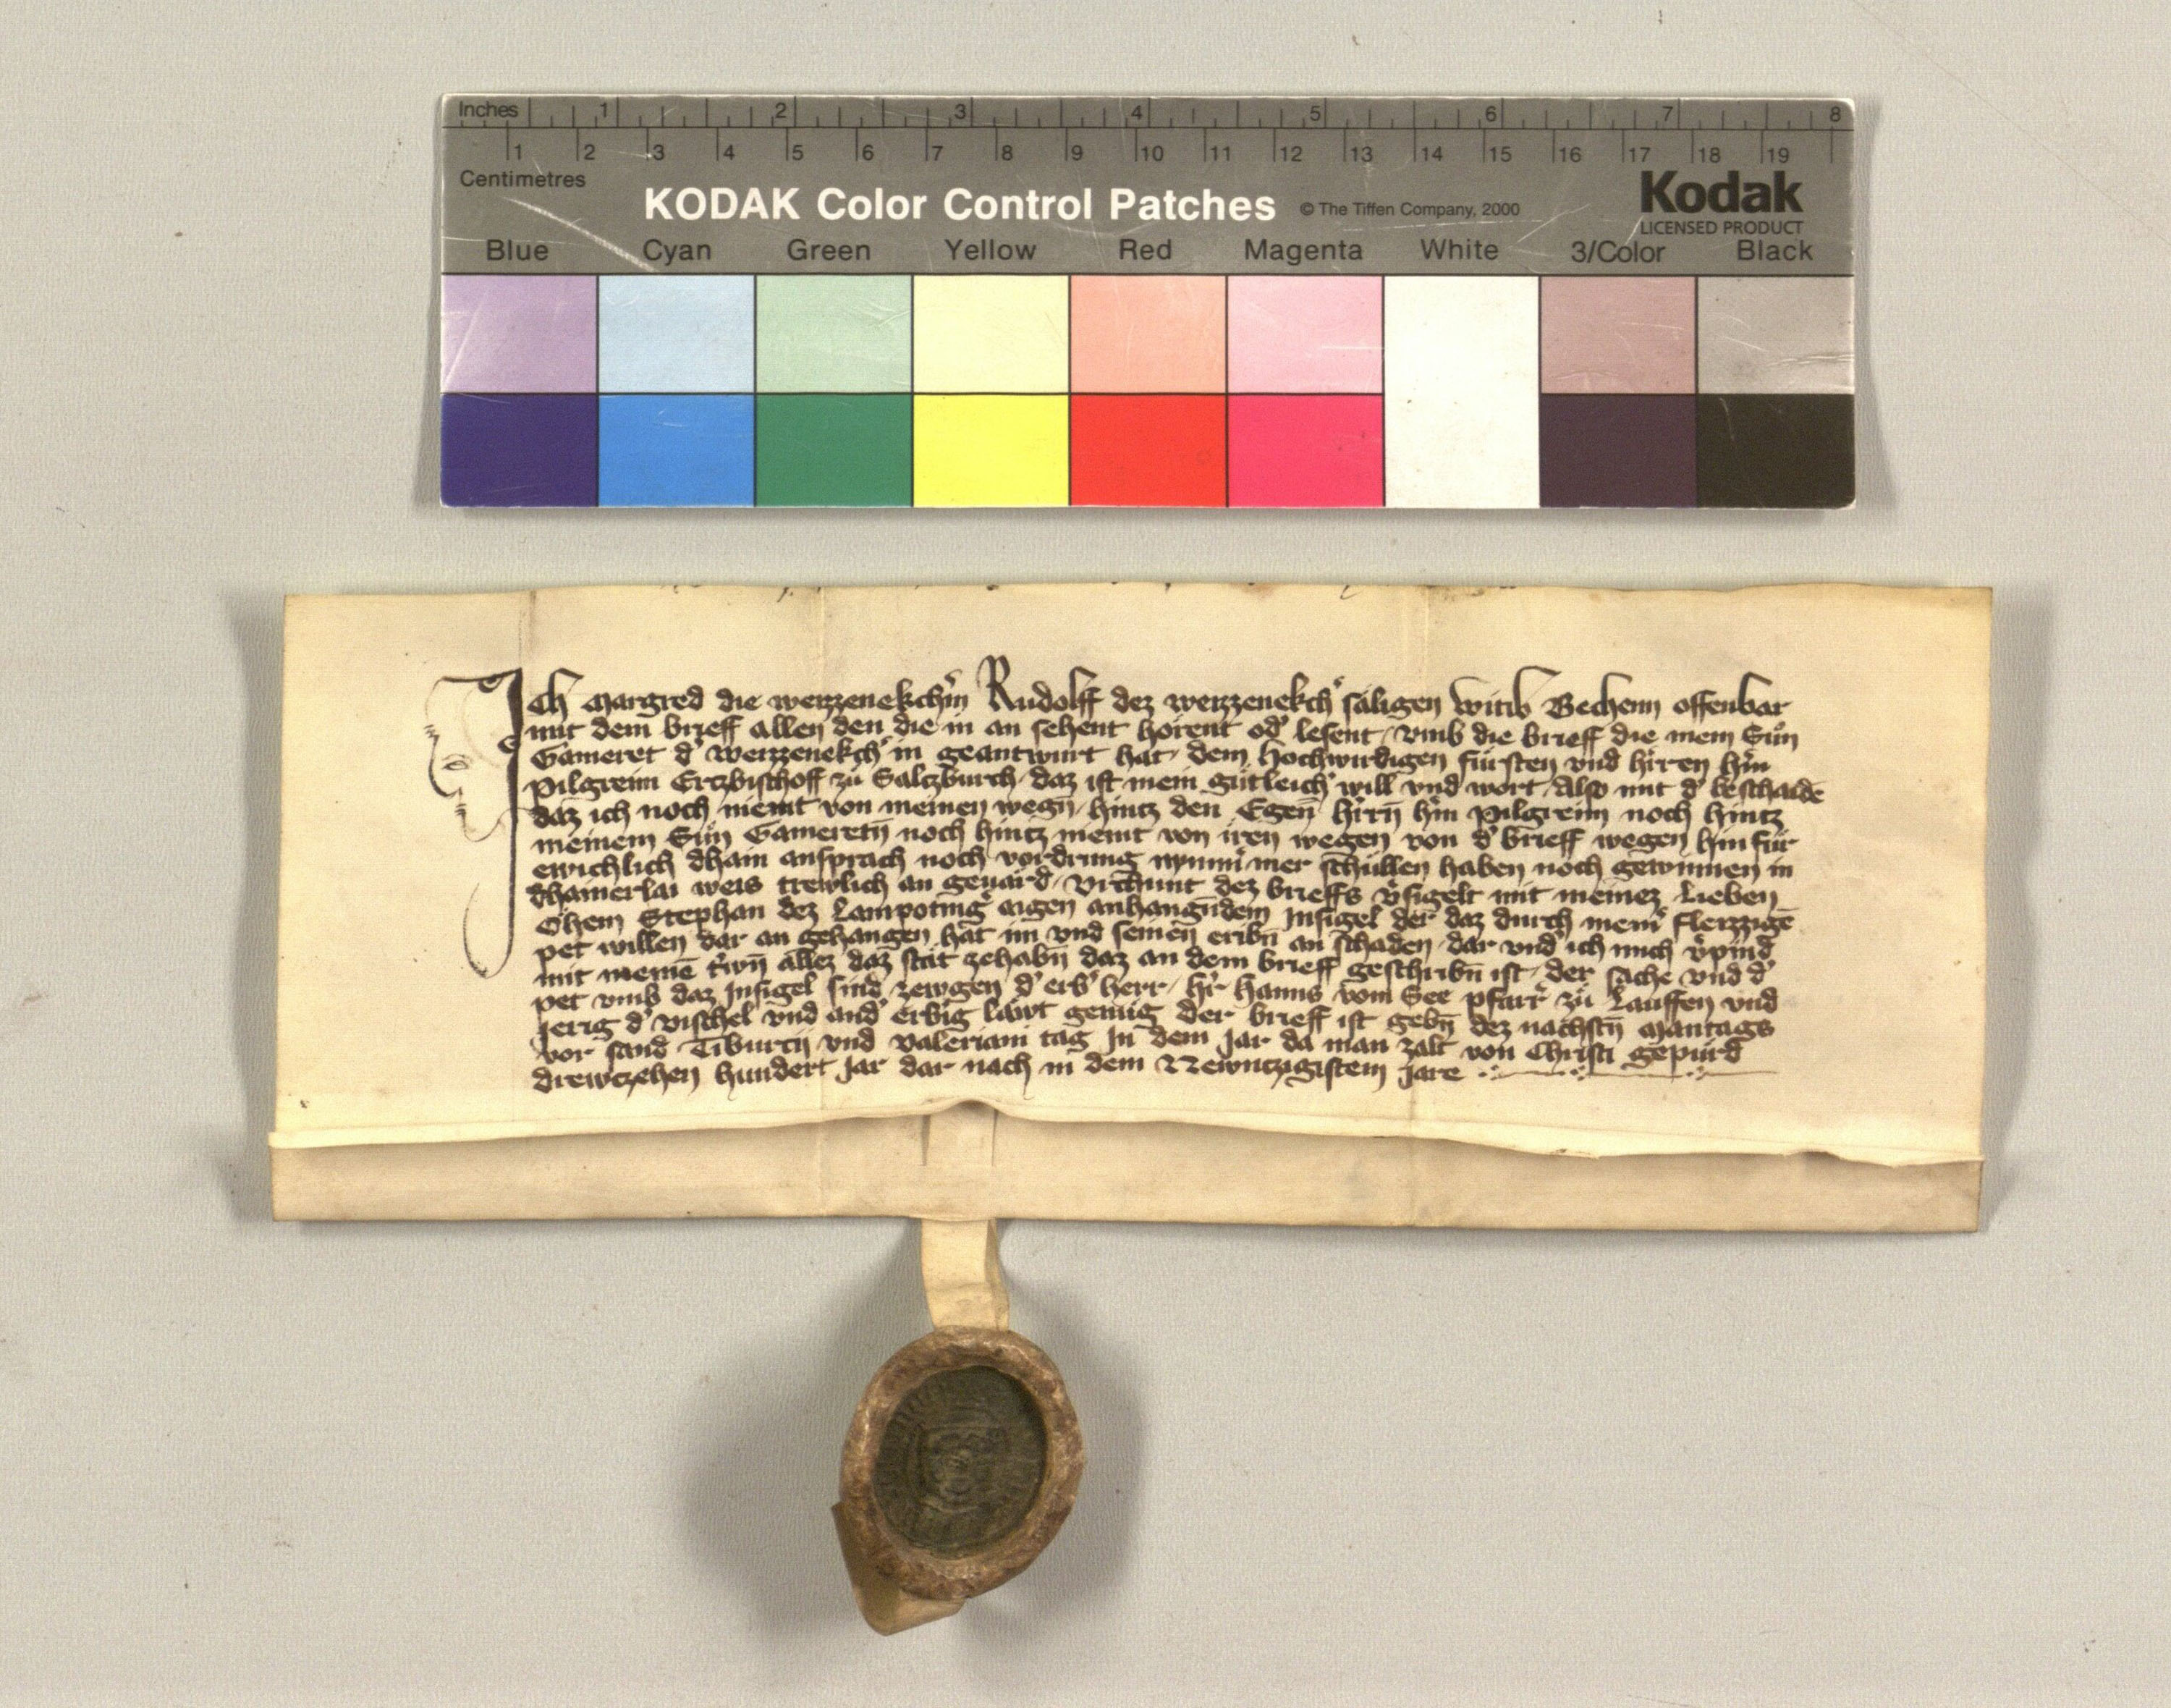 Inches 1 2 3 4 5 6 7 8
1 2 3 4 5 6 7 8 9 10 11 12 13 14 15 16 17 18 19
Centimetres
KODAK Color Control Patches © The Tiffen Company, 2000 Kodak
LICENSED PRODUCT
Blue Cyan Green Yellow Red Magenta White 3/Color Black
Ich Margred die weyzzenekchin Rudolff dez weyzzenekch͛ säligen witib Bechenn offenbar
mit dem brieff allen den die in an sehent hörent od͛ lesent / vmb die brieff die mein Sun
Gameret d͛ weyzzenekch͛ in geantwurt hat / dem hochwirdigen fürsten vnd h͛ren h͛n
Pilgreim Ertzbischoff zu Saltzburch / daz ist mein gütleich͛ will vnd wort / Also mit d͛ beschaidē
daz ich noch niemt von meinen wegn̄ / hintz den Egen̄ h͛rn̄ h͛n Pilgreim noch hintz
meinem Sun Gameretn̄ noch hintz niemt von iren wegen von d͛ brieff wegen hin für
ewichlich dhain ansprach noch vordrung nymm͛mer schullen haben noch gewinnen in
dhainerlai weis trewlich an geuärd / Vrchunt dez brieffs v͛sigelt mit meinez Lieben
Öhem Stephan dez Lampoting͛ aigen anhangūdem Insigel der daz durch mein͛ fleizzigē
pet willen dar an gehangen hat im vnd seinen eribn̄ an schaden / dar vnd͛ ich mich v͛pind
mit meinē t͛wn̄ allez daz stät zehabn̄ daz an dem brieff geschribn̄ ist / der sache vnd d͛
pet vmb daz Insigel sind zewgen d͛ erb͛ herr / h͛r Hanns vom See pfarr͛ zu Lauffen vnd
Jerig d͛ vischel vnd and͛ erb͛ig läwt genüg Der brieff ist gebn̄ dez nachstn̄ Mäntags
vor sand Tiburtij vnd Valeriani tag In dem Jar da man zalt von Christi gepürd
drewtzehen hundert Jar dar nach in dem Newntzigistem Jare